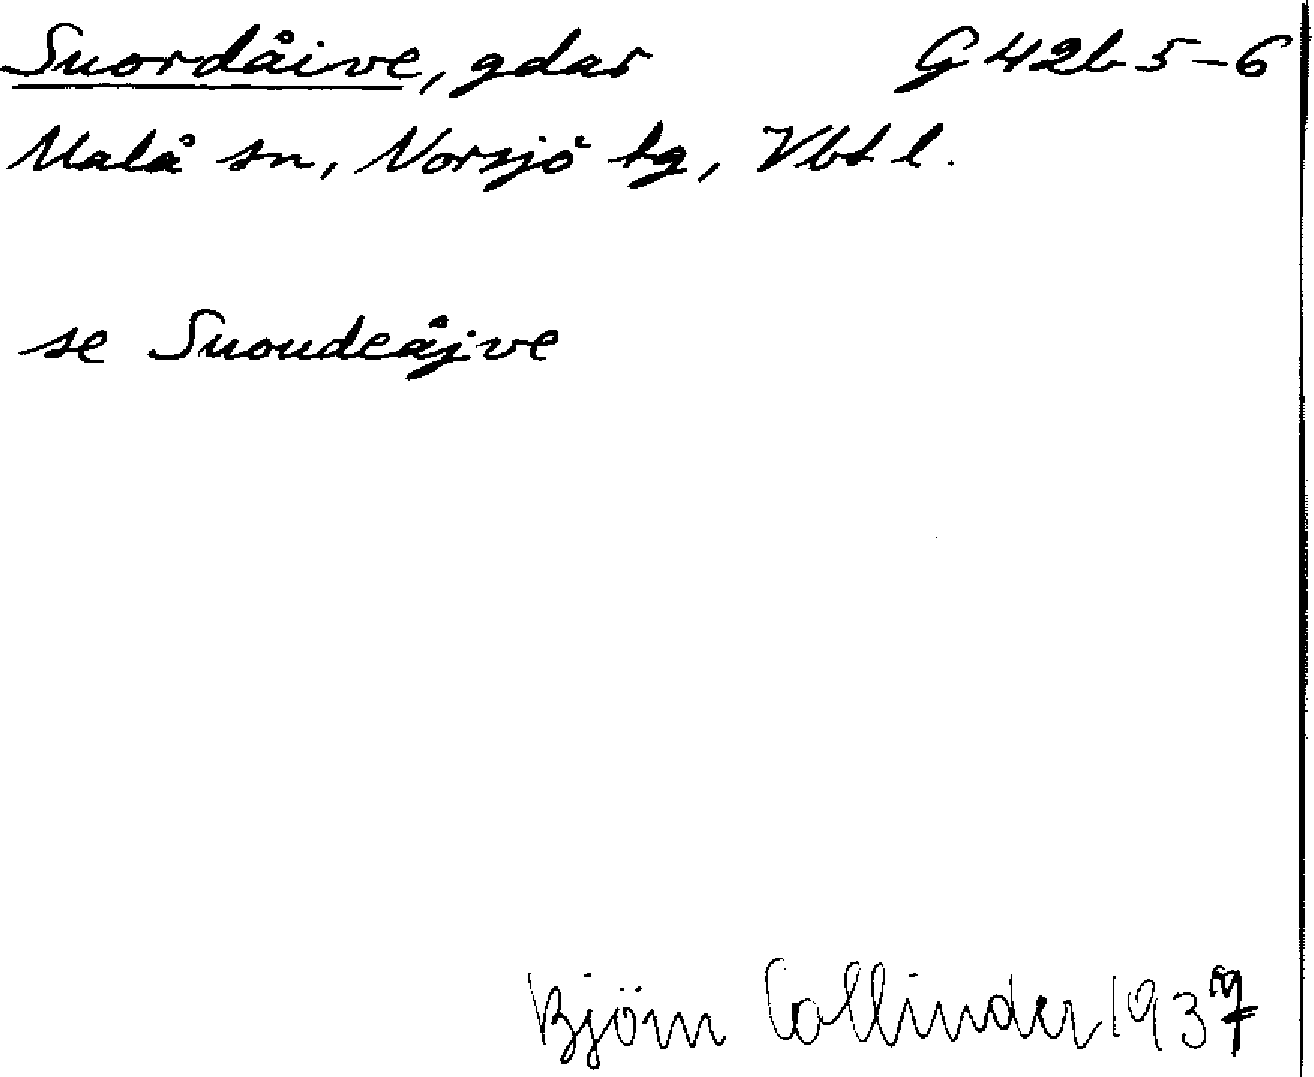 Suordåive, gdar G 42b 5-6
Malå sn, Norsjö tg, Vbt l.
se Suoudeåjve
Björn Collinder 1937